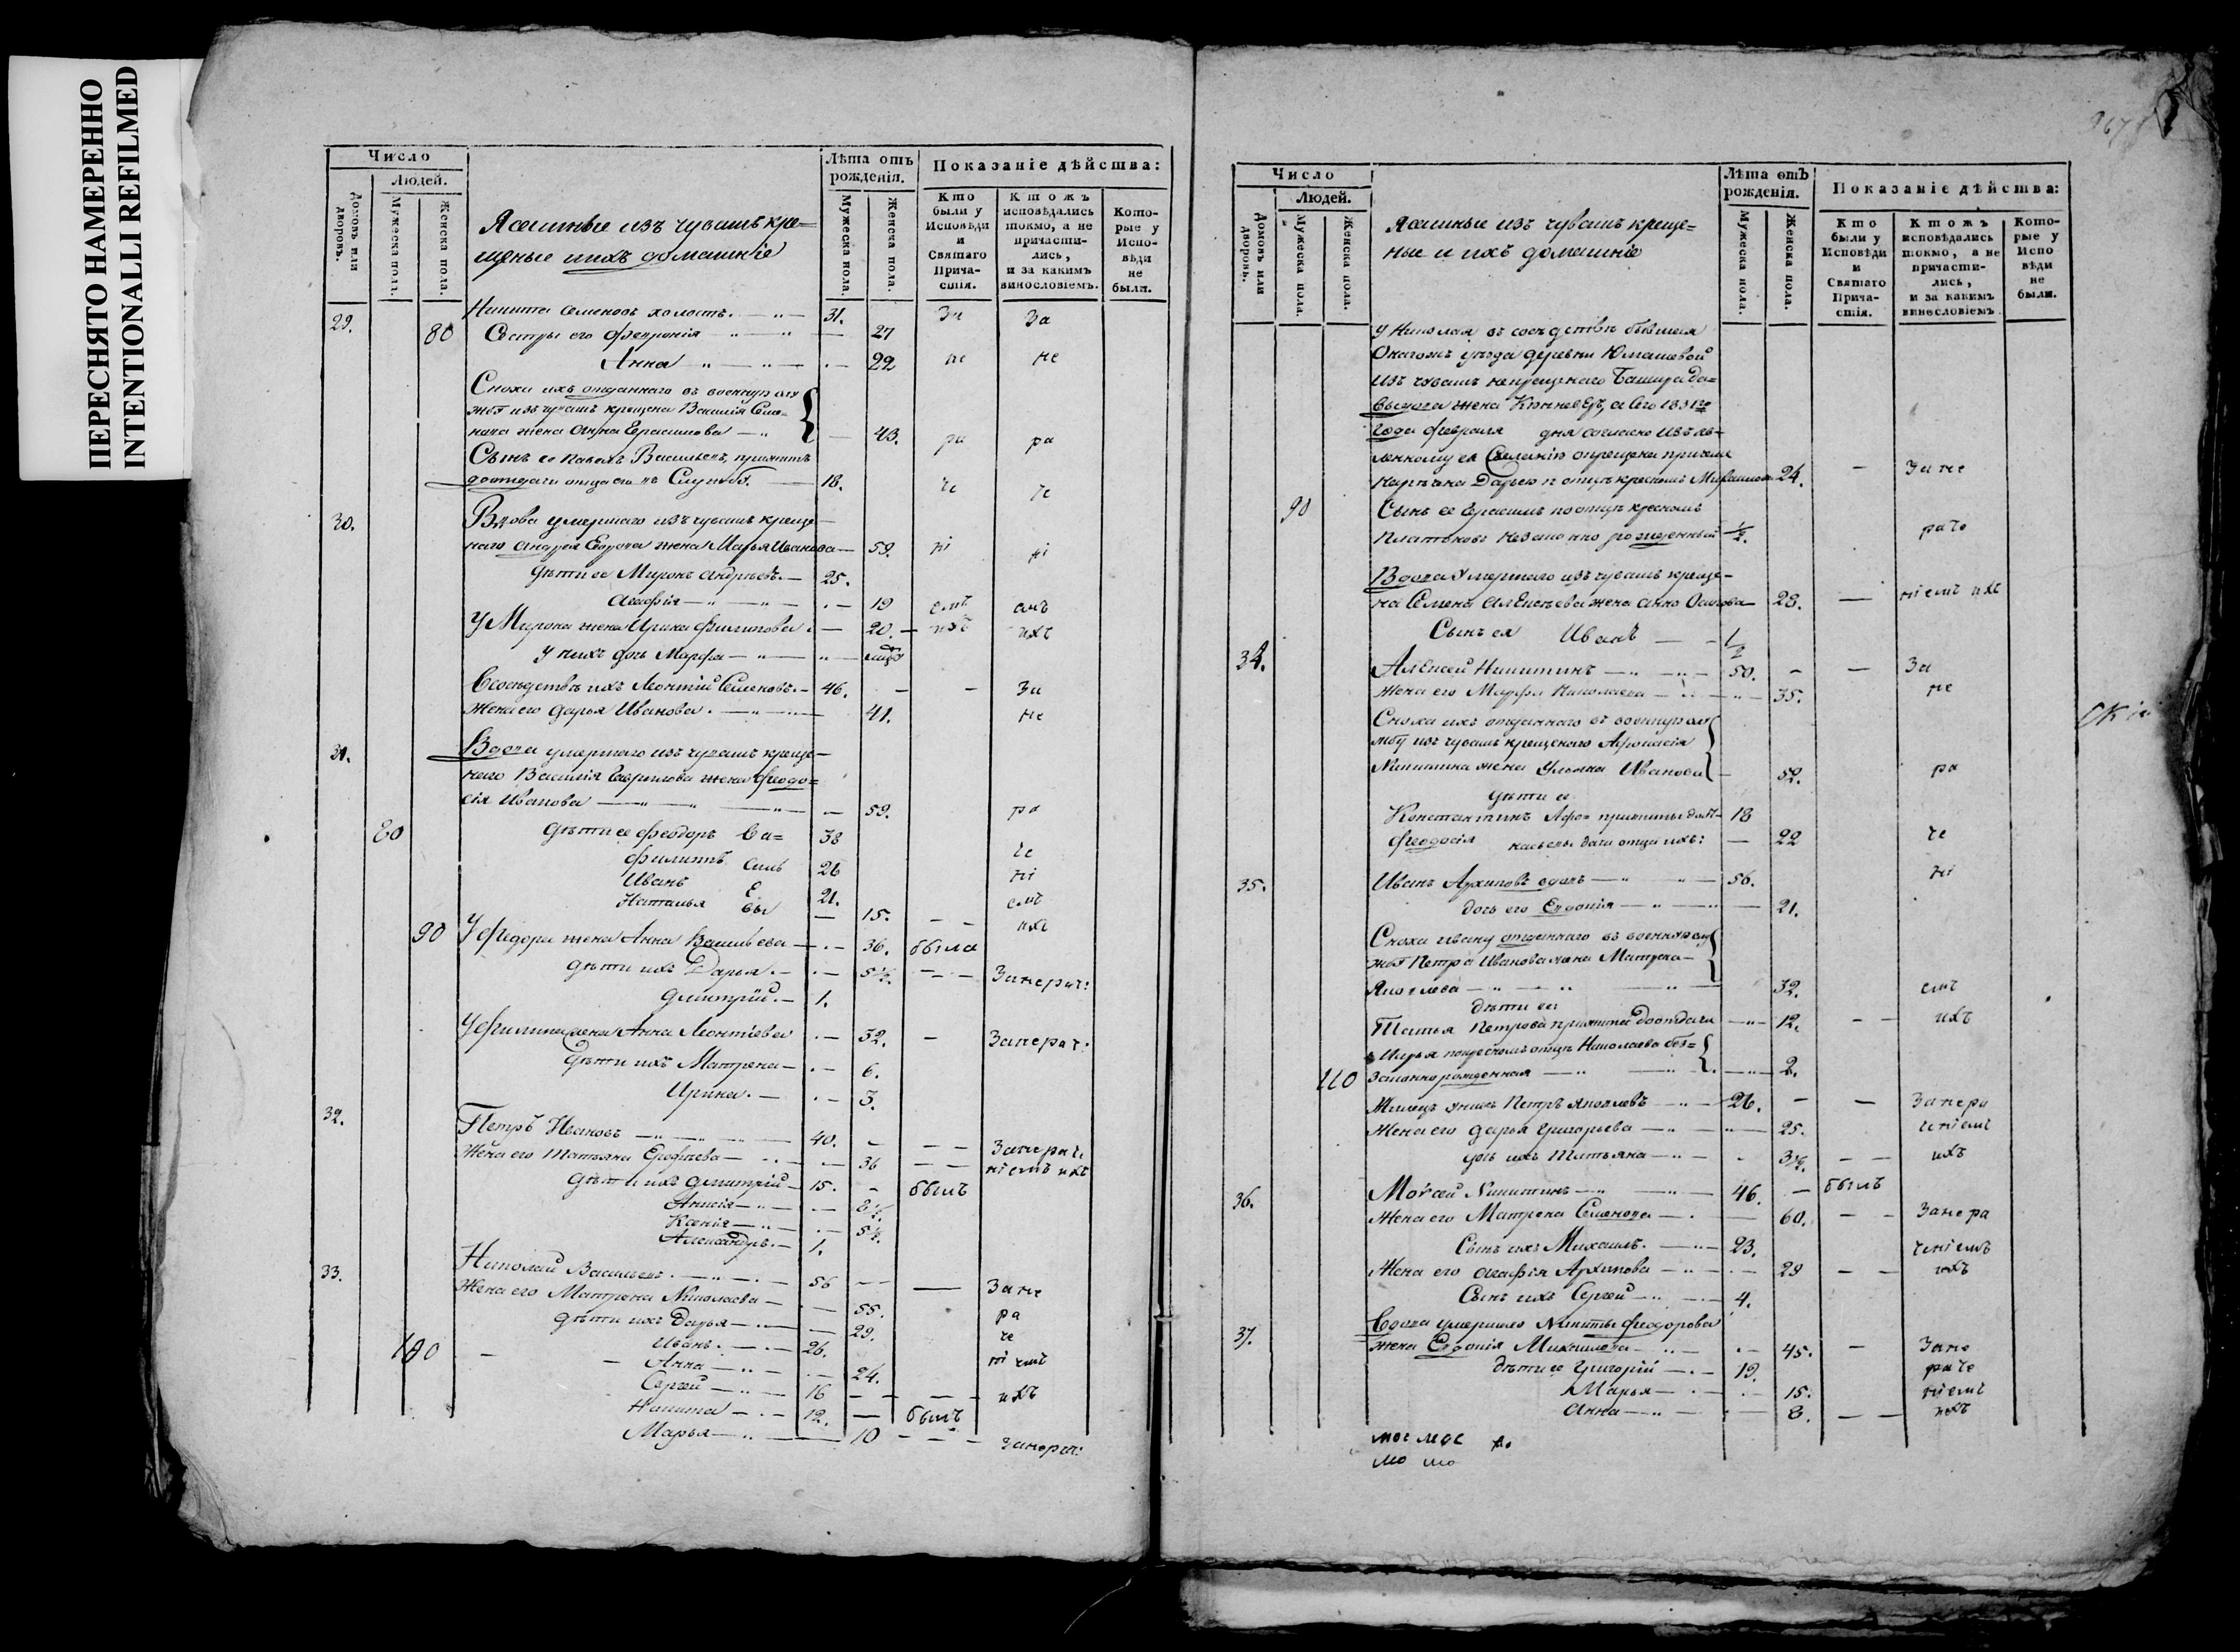 ПЕРЕСНЯТО НАМЕРЕННО
INTENTIONALLI REFILMED
Число
Людей.
Домовъ или дворовъ.
Мужеска пола.
Женска пола.
Ясашные изъ чувашъ кре=
щеные и ихъ домашніе
Лѣта отъ рожденія.
Мужеска пола.
Женска пола.
Показаніе дѣйства:
Кто были у Исповѣди и Святаго Причастія.
Ктожъ исповѣдались токмо, а не причастились, и за какимъ винословіемъ.
Которые у Исповѣди не были.
29. Никита Семеновъ холостъ. 31. За За
80 Сестры его Февронія 27
Анна 22 не не
Сноха ихъ отданнаго въ военную слу
жбу изъ чувашъ крещена Василія Семе=
нова жена Анна Герасимова 43. ра ра
Сынъ ея Павелъ Васильевъ, прижитъ
до отдачи отца его въ Службу. 18. че че
30. Вдова умершаго изъ чувашъ креще-
наго Андрея Егорова жена Марья Иванова 59. ні ні
Дѣти ее Миронъ Андреевъ. 25.
Агафія 19 емъ емъ
У Мирона жена Ирина Филипова 20. ихъ ихъ
У нихъ дочь Марфа
Всосѣдствѣ ихъ Леонтій Семеновъ. 46. За
Жена его Дарья Иванова. 41. не
31. Вдова умершаго изъ чувашъ креще-
наго Василія Гаврилова жена Феодо=
сія Иванова 59. ра
80 Дѣти ее Феодоръ Ва= 38 че
Филиппъ силь 26 ні
Иванъ Е 21. емъ
Наталья вы 15. ихъ
90 У Федора жена Анна Васильева 36. была
Дѣти ихъ Дарья. 5½. Занерач:
Дмитрій. 1.
У Филипа жена Анна Леонтіева 32. Занерач:
Дѣти ихъ Матрена 6.
Ирина. 3.
32. Петръ Ивановъ 40. Занерачи
Жена его Татьяна Ерофеева 36 ніемъ ихъ
Дѣти ихъ Дмитрій 15. былъ
Анисія 8½.
Ксенія 5½.
Александръ. 1.
33. Николай Васильевъ. 56 Зане
Жена его Матрена Николаева 55. ра
Дѣти ихъ Дарья 29. че
Иванъ. 26. ніемъ
100 Анна 24.
Сергей 16 ихъ
Никита 12. былъ
Марья 10 Занерач:
Число
Людей.
Домовъ или дворовъ.
Мужеска пола.
Женска пола.
Ясашные изъ чувашъ креще=
ные и ихъ домашніе
Лѣта отъ рожденія.
Мужеска пола.
Женска пола.
Показаніе дѣйства:
Кто были у Исповѣди и Святаго Причастія.
Ктожъ исповѣдались токмо, а не причастились, и за какимъ винословіемъ.
Которые у Исповѣди не были.
У Николая въ сосѣдствѣ бывшая
Онагожъ уѣзда деревни Юмашевой
изъ чувашъ некрещенаго Башира
жена а Сего 1831го
года февраля дня согласно изъяв-
ленному ея желанію окрещена при чемъ
наречена Дарьею п отцѣ крестномъ 24. Зане
90 Сынъ ее Герасимъ по отцѣ крестномъ
Платоновъ незаконно рожденный ½. раче
Вдова умершаго изъ чувашъ креще-
на Семена Алексѣева жена Анна Осипова 28. ніемъ ихъ
Сынъ ея Иванъ ½
34. Алексей Никитинъ 50. За
Жена его Марфа Николаева 35. не
Сноха ихъ отданнаго въ военную слу
жбу изъ чувашъ крещенаго Афонасія
Никитина жена Ульяна Иванова 52. ра
Дѣти ее
Константинъ Афо= прижиты до от- 18
Феодосія насьевы дачи отца ихъ: 22 че
35. Иванъ Архиповъ вдовъ 56. ні
дочь его Евдокія 21.
Сноха Ивану отданнаго въ военную слу
жбу Петра Иванова жена Матрена
Яковлева 32. емъ
Дѣти ее:
Татья Петрова прижита до отдачи 12. ихъ
Марья покрестномъ отцѣ Николаева без=
110 законно рожденная 2.
Жилецъ у нихъ Петръ Яковлевъ 26. Занера
Жена его Дарья Григорьева 25. ченіемъ
дочь ихъ Татьяна 3½. ихъ
36. Мойсей Никитинъ 46. былъ
Жена его Матрена Семенова 60. Занера
Сынъ ихъ Михаилъ. 23. ченіемъ
Жена его Агафія Архипова 29 ихъ
Сынъ ихъ Сергей 4.
37. Вдова умершаго Никиты Феодорова
жена Евдокія Михайлова 45. Зане
дѣти ее Григорій 19. раче
Марья 15. ніемъ
Анна 8. ихъ